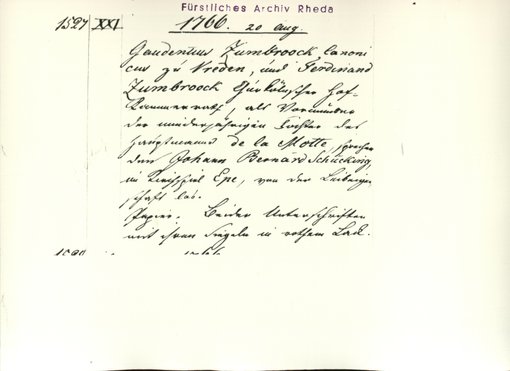 Fürstliches Archiv Rheda
1527 XXI 1766. 20 Aug.
Gaudentius Zumbroock Canoni
cus zu Vreden, und Ferdinand
Zumbroock Churkölnscher Hof-
Kammerrath, als Vormünder
der minderjährigen Tochter des
Hauptmanns de la Motte, sprechen
den Johann Bernard Schücking,
im Kirchspiel Epe, von der Leibeigen
schaft los.
Papier. Beider Unterschriften
mit ihren Siegeln in rothem Lack.